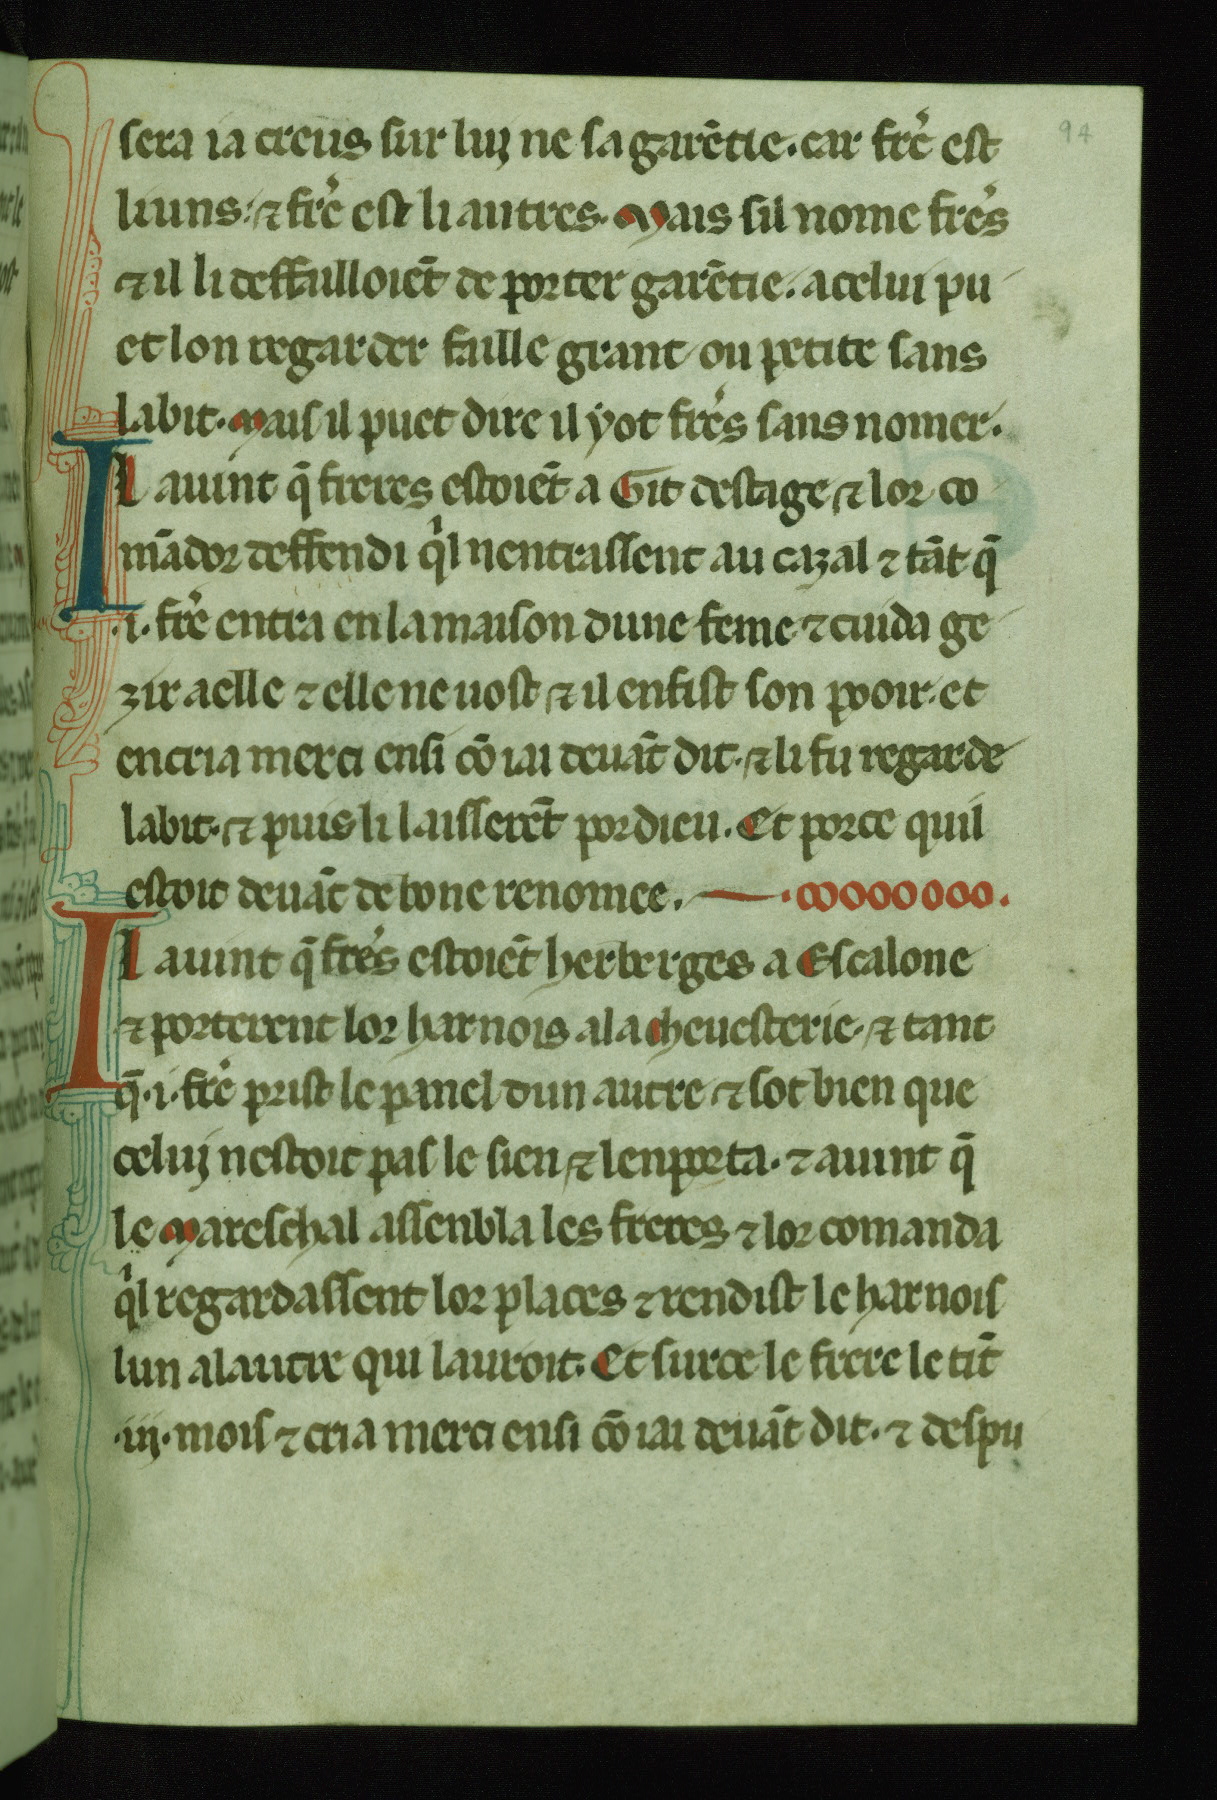 94
sera ia creus sur luj ne sa garētie. car frē est
li uns. ⁊ frē est li autres. Mais sil nome frēs
⁊ il li deffailloiēt de porter garētie. a celui pu
et lon regarder faille grant ou petite sans
labit. Mais il puet dire il ẏ ot frēs sans nomer.
IL auint q̄ freres estoiēt a Git destage ⁊ lor co
mādor deffendi qͥl nentrassent au cazal ⁊ tāt q̄
.i. frē entra en la maison dune feme ⁊ cuida ge
zir a elle ⁊ elle ne uost ⁊ il enfist son pooir. et
encria merci ensi cō iai deuāt dit. ⁊ li fu regarde
labit. ⁊ puis li laisserēt por dieu. Et por ce quil
estoit deuāt de bone renomee.
IL auint q̄ frēs estoiēt herberges a Escalone
⁊ porterent lor harnois a la cheuesterie. ⁊ tant
q̄ .i. frē prist le panel dun autre ⁊ sot bien que
celuj nestoit pas le sien ⁊ lenporta. ⁊ auint q̄
le Mareschal assenbla les freres ⁊ lor comanda
qͥl regardassent lor places ⁊ rendist le harnois
lun a lautre qui lauroit. Et sur ce le frere le tīt
.iij. mois ⁊ cria merci ensi cō iai deuāt dit. ⁊ despu